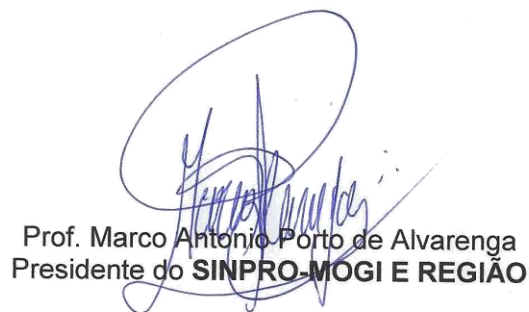 Prof. Marco Antonio Porto de Alvarenga
Presidente do SINPRO-MOGI E REGIÃO